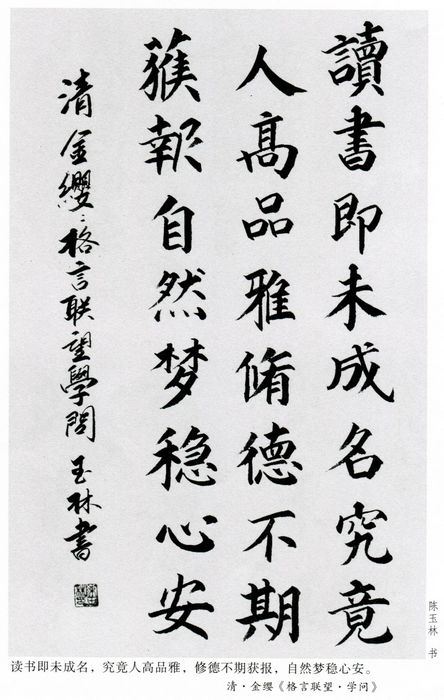 讀書即未成名究竟
人高品雅脩德不期
獲報自然梦稳心安
清金缨格言联望學問 玉林書
陈玉林 书
读书即未成名，究竟人高品雅，修德不期获报，自然梦稳心安。
清·金缨《格言联望·学问》